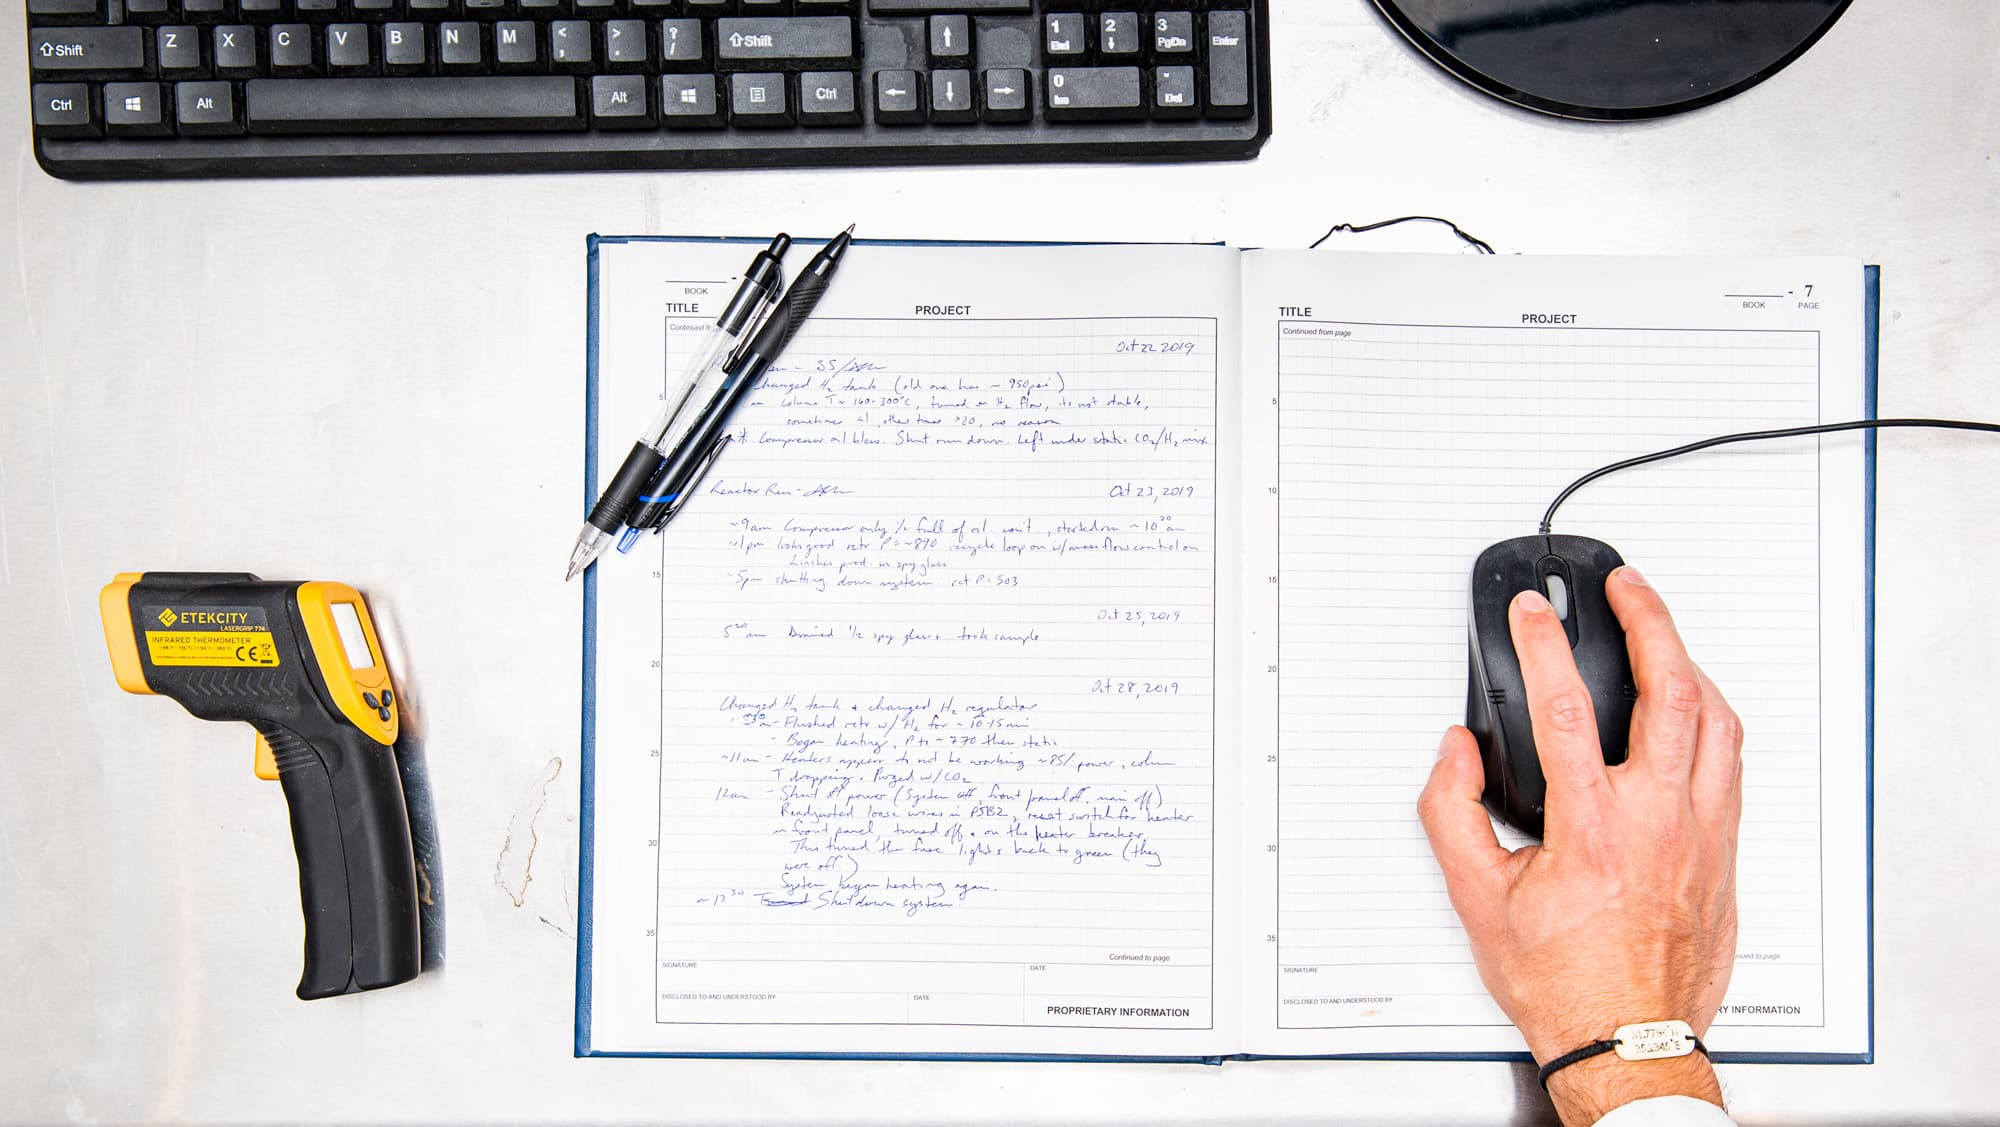 Shift Z X C V B N M < , > . ? / Shift 1 End 2 3 PgDn Enter
Ctrl Alt Alt Ctrl 0 Ins . Del
BOOK -
TITLE PROJECT
Continued fr
Oct 22 2019
- SS/
changed H2 tank (old one has ~ 950psi)
column T ~ 160-300°C, turned on H2 flow, its not stable,
sometimes <1, other times >20, no reason
* Compressor oil blew. Shut run down. Left under static CO2/H2 mix
Reactor Run - Oct 23, 2019
~9am Compressor only ½ full of oil. , started on ~10 30 am
~1pm looks good rctr P=~890 recycle loop on w/ mass flow control on
2 inches prod. in spy glass
~5pm shutting down system. rct P=503
Oct 25, 2019
5 20 am Drained ½ spy glass + took sample
Oct 28, 2019
Changed H2 tank + changed H2 regulator
- Flushed rctr w/ H2 for ~10-15min
- Began heating, P to ~770 then static
~11am - Heaters appear to not be working ~85% power, column
T dropping. Purged w/ CO2
12am - Shut off power (System off, front panel off, main off)
Readjusted loose wires in PSB2, reset switch for heater
in front panel, turned off + on the heater breaker.
This turned the fuse lights back to green (they
were off)
System began heating again.
~12 30 Shut down system.
5
15
20
25
30
35
Continued to page
SIGNATURE DATE
DISCLOSED TO AND UNDERSTOOD BY DATE
PROPRIETARY INFORMATION
BOOK - 7 PAGE
TITLE PROJECT
Continued from page
5
10
15
20
25
30
35
ued to page
SIGNATURE
DISCLOSED TO AND UNDERSTOOD BY
RY INFORMATION
ETEKCITY
LASERGRIP 774
INFRARED THERMOMETER
CE